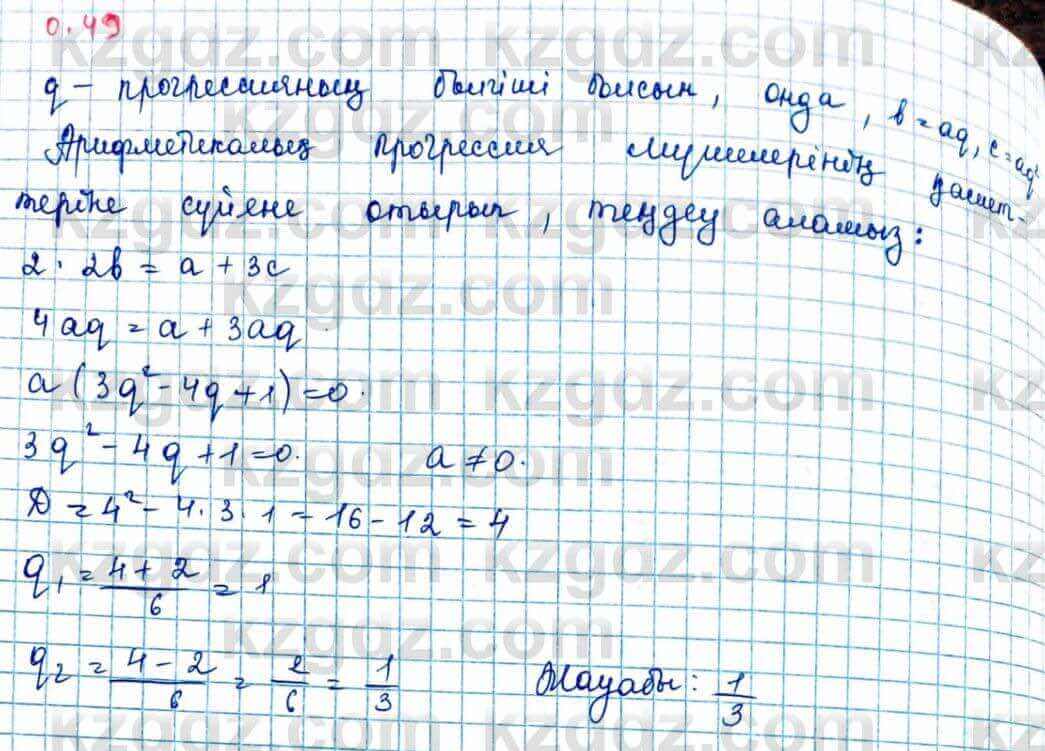 0.49
q - прогрессияның бөлгіші болсын, онда, b = aq, c = aq²
Арифметикалық прогрессия мүшелерінің қасиет-
теріне сүйене отырып, теңдеу аламыз:
2 · 2b = a + 3c
4aq = a + 3aq
a(3q² - 4q + 1) = 0.
3q² - 4q + 1 = 0. a ≠ 0.
D = 4² - 4·3·1 = 16 - 12 = 4
q₁ = (4 + 2)/6 = 1
q₂ = (4 - 2)/6 = 2/6 = 1/3 Жауабы: 1/3
kzgdz.com